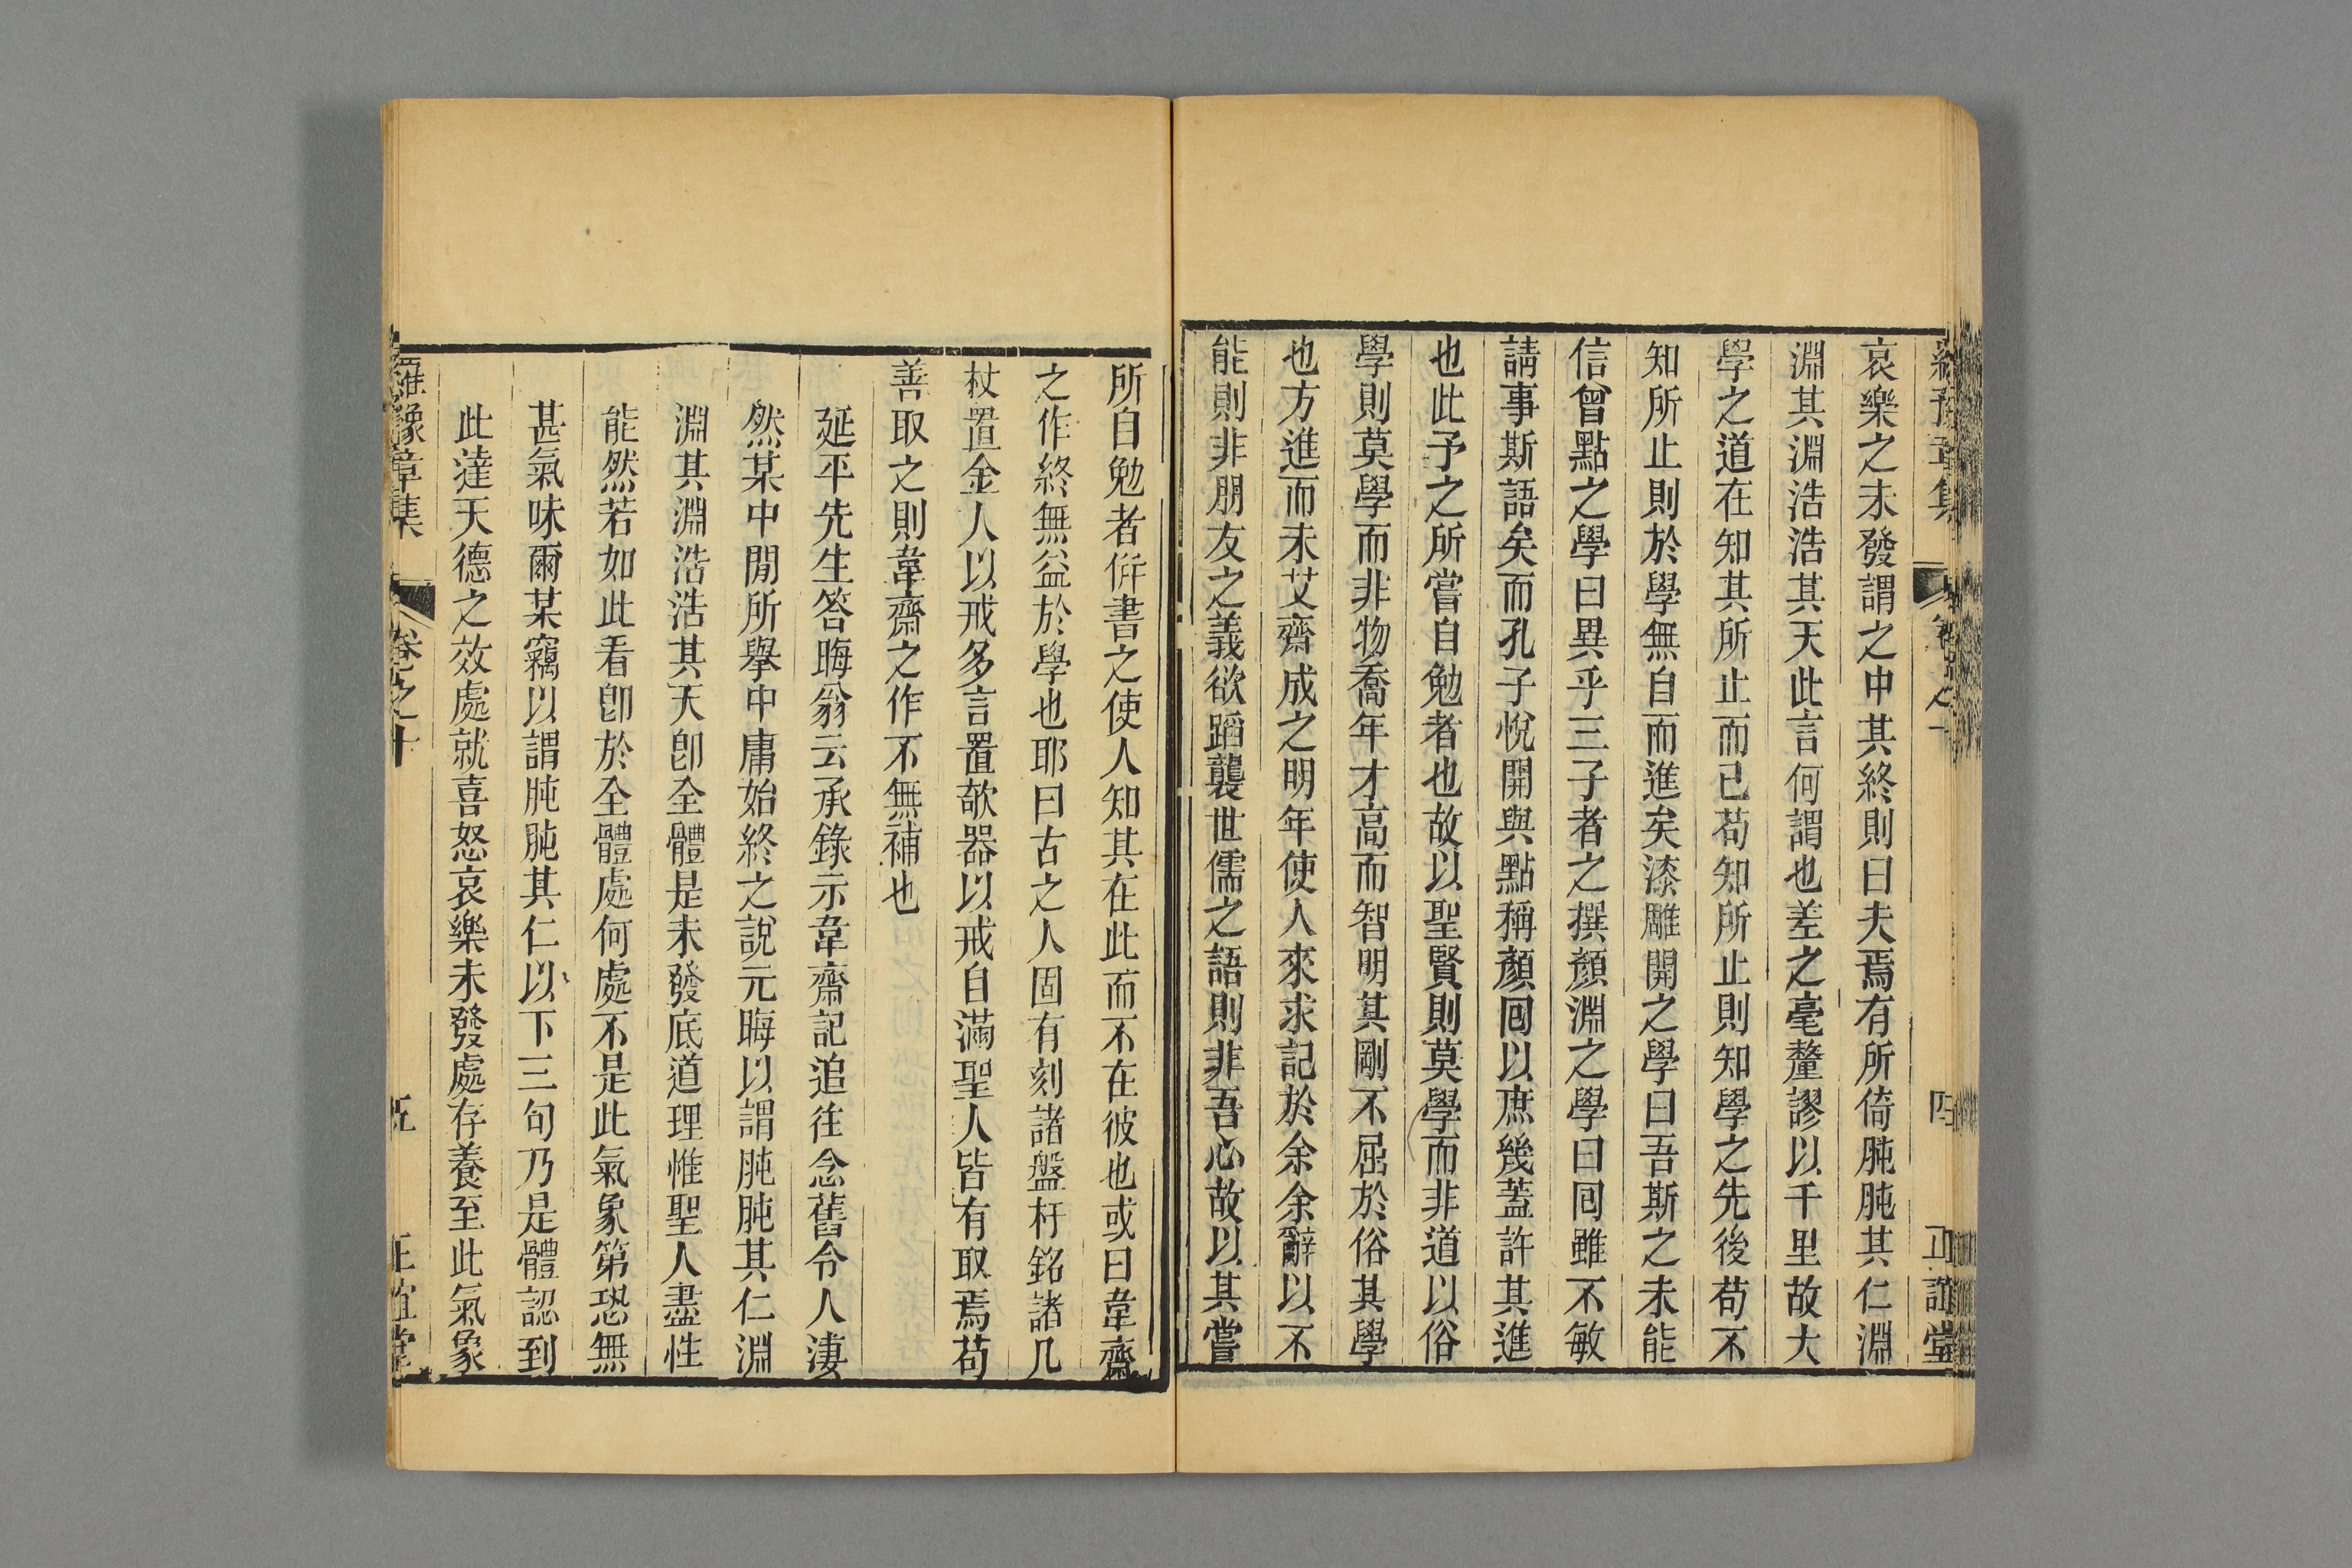 哀樂之未發謂之中其終則曰夫焉有所倚肫肫其仁淵
淵其淵浩浩其天此言何謂也差之毫釐謬以千里故大
學之道在知其所止而已苟知所止則知學之先後苟不
知所止則於學無自而進矣漆雕開之學曰吾斯之未能
信曾點之學曰異乎三子者之撰顏淵之學曰囘雖不敏
請事斯語矣而孔子悅開與點稱顏囘以庶幾蓋許其進
也此予之所嘗自勉者也故以聖賢則莫學而非道以俗
學則莫學而非物喬年才高而智明其剛不屈於俗其學
也方進而未艾齋成之明年使人來求記於余余辭以不
能則非朋友之義欲蹈襲世儒之語則非吾心故以其嘗
所自勉者倂書之使人知其在此而不在彼也或曰韋齋
之作終無益於學也耶曰古之人固有刻諸盤杅銘諸几
杖置金人以戒多言置欹器以戒自滿聖人皆有取焉苟
善取之則韋齋之作不無補也
延平先生答晦翁云承錄示韋齋記追往念舊令人淒
然某中閒所舉中庸始終之說元晦以謂肫肫其仁淵
淵其淵浩浩其天卽全體是未發底道理惟聖人盡性
能然若如此看卽於全體處何處不是此氣象第恐無
甚氣味爾某竊以謂肫肫其仁以下三句乃是體認到
此達天德之效處就喜怒哀樂未發處存養至此氣象
羅豫章集 卷之十 五 正誼堂